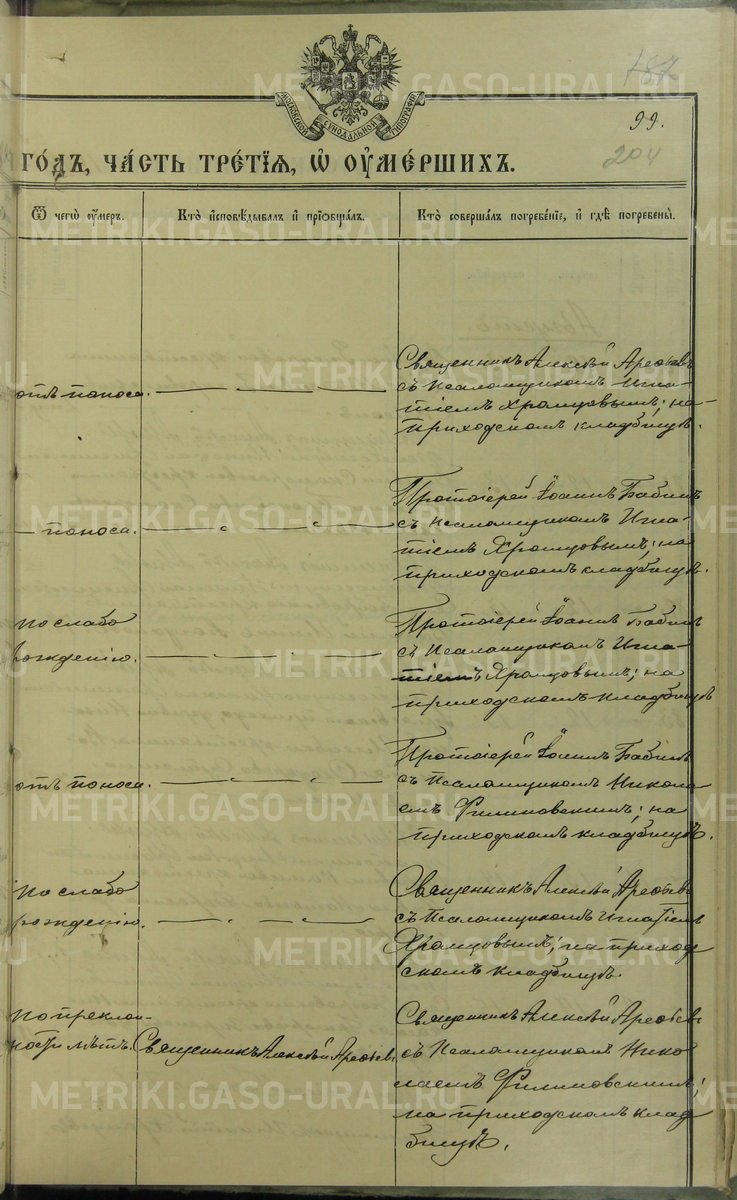 187.
МОСКОВСКОЙ СѴНОДАЛЬНОЙ ТИПОГРАФІИ
99.
204
ГО́ДЪ, ЧА́СТЬ ТРЕ́ТЇѦ, Ѡ҆ ОУ҆МЕ́РШИХЪ.
Ѿ чегѡ̀ оу҆́меръ.
Кто̀ и҆сповѣ́дывалъ и҆ прїѡбща́лъ.
Кто̀ соверша́лъ погребе́нїе, и҆ гдѣ̀ погребены̀.
отъ поноса.
Священникъ Алексѣй Арефьевъ
съ Псаломщикомъ Игна-
тіемъ Храмцовымъ; на
приходскомъ кладбищѣ.
— поноса.
Протоіерей Іоаннъ Бабинъ
съ Псаломщикомъ Игна-
тіемъ Храмцовымъ; на
приходскомъ кладбищѣ.
по слабо
рожденію.
Протоіерей Іоаннъ Бабинъ
съ Псаломщикомъ Игна-
тіемъ Храмцовымъ; на
приходскомъ кладбищѣ
отъ поноса.
Протоіерей Іоаннъ Бабинъ
съ Псаломщикомъ Никола
емъ Филиповскимъ; на
приходскомъ кладбищѣ.
по слабо
рожденію.
Священникъ Алексѣй Арефьевъ
съ Псаломщикомъ Игнатіемъ
Храмцовымъ; на приход
скомъ кладбищѣ.
по преклон-
ности лѣтъ.
Священникъ Алексѣй Арефьевъ
Священникъ Алексѣй Арефьевъ
съ Псаломщикомъ Нико
лаемъ Филиповскимъ;
на приходскомъ клад
бищѣ.
METRIKI.GASO-URAL.RU